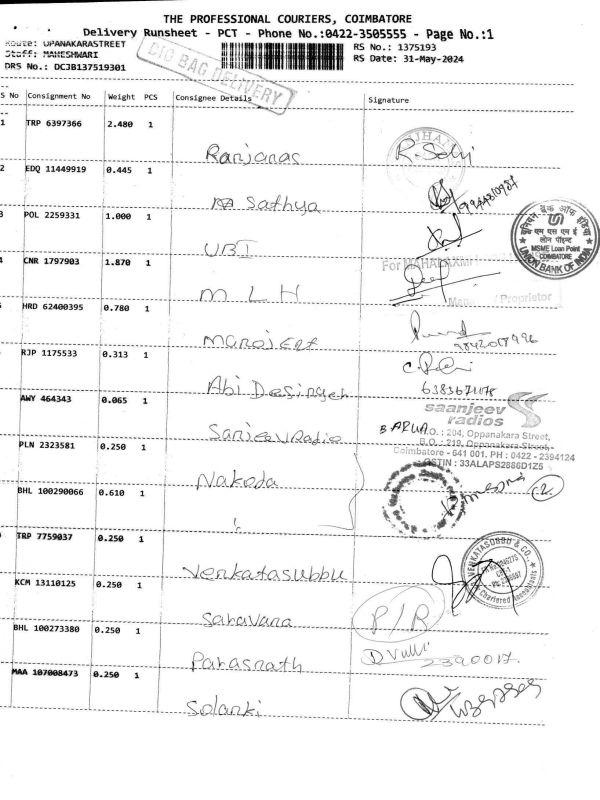 THE PROFESSIONAL COURIERS, COIMBATORE
Delivery Runsheet - PCT - Phone No.:0422-3505555 - Page No.:1
Route: OPANAKARASTREET
Staff: MAHESHWARI
DRS No.: DCJB137519301
BIG BAG DELIVERY
RS No.: 1375193
RS Date: 31-May-2024
S No Consignment No Weight PCS Consignee Details Signature
1 TRP 6397366 2.480 1
Ranjanas
2 EDQ 11449919 0.445 1
Sathya
3 POL 2259331 1.000 1
UBI
यूनियन बैंक ऑफ इंडिया
एम एस एम ई
लोन पॉइन्ट
MSME Loan Point
COIMBATORE
UNION BANK OF INDIA
4 CNR 1797903 1.870 1
M L H
For MAHALAXMI
/ Proprietor
HRD 62400395 0.780 1
RJP 1175533 0.313 1
Abi Desingeh
AWY 464343 0.065 1
saanjeev
radios
B.O.: 204, Oppanakara Street,
B.O.: 219, Oppanakara Street,
Coimbatore - 641 001. PH : 0422 - 2394124
GSTIN : 33ALAPS2886D1Z5
PLN 2323581 0.250 1
Nakoda
BHL 100290066 0.610 1
TRP 7759037 0.250 1
Venkatasubbu
VENKATASUBBU & CO.,
Chartered Accountants
KCM 13110125 0.250 1
Saravana
P/R
BHL 100273380 0.250 1
Parasnath
2390017.
MAA 107008473 0.250 1
Solanki